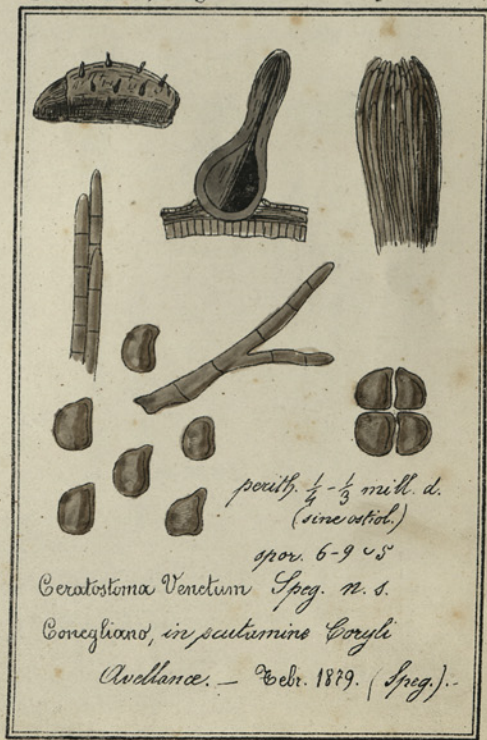 perith. 1/4 - 1/3 mill. d.
(sine ostiol.)
spor. 6-9 ∪ 5
Ceratostoma Venetum Speg. n. s.
Conegliano, in putamine Coryli
Avellanæ. — Febr. 1879. (Speg.).-